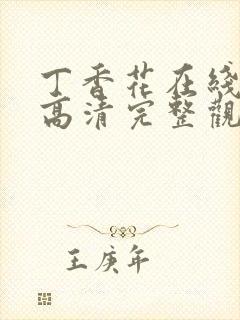 丁香花在綫
高清完整觀
王庚年